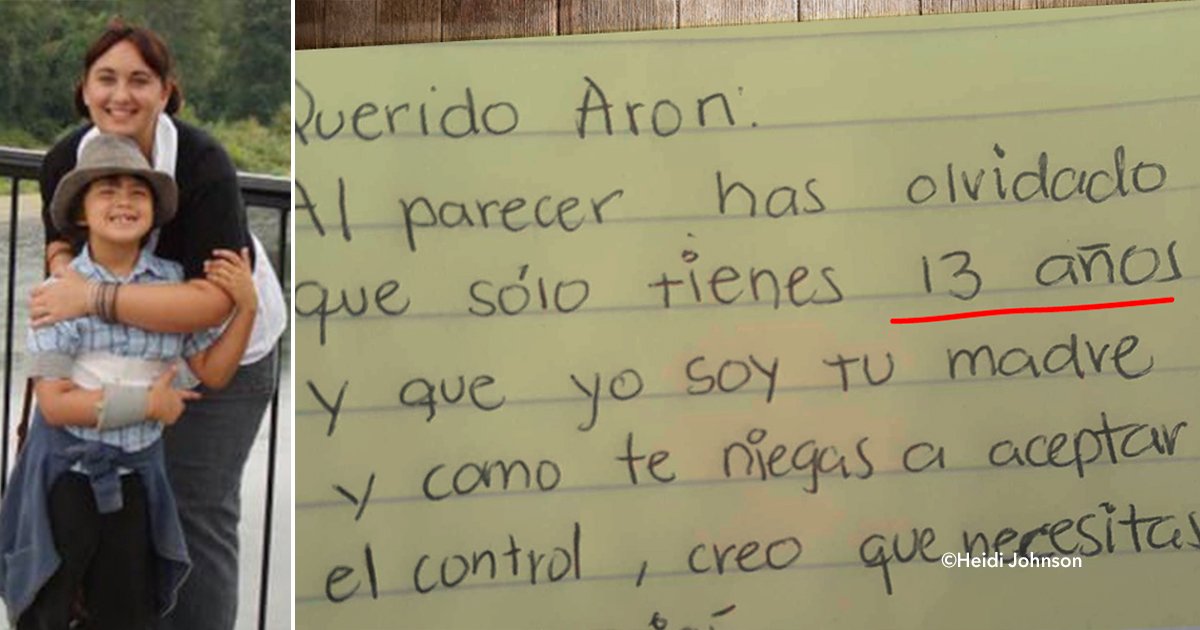 Querido Aron:
Al parecer has olvidado
que sólo tienes 13 años
y que yo soy tu madre
y como te niegas a aceptar
el control, creo que necesitas
©Heidi Johnson